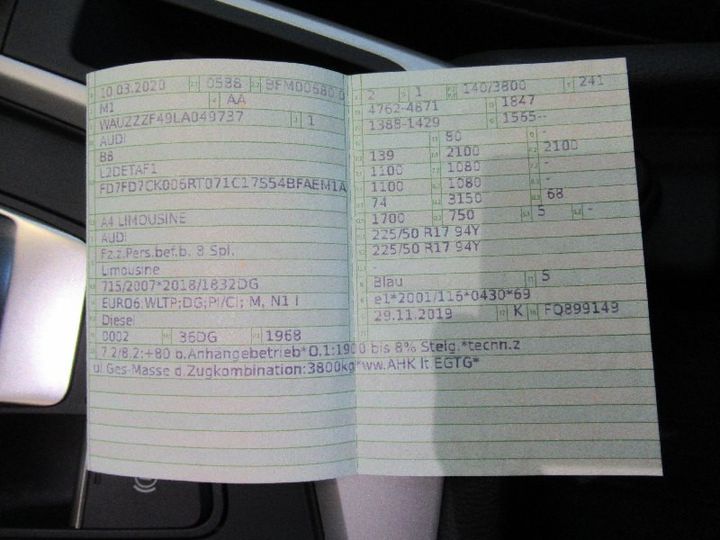 10.03.2020 0588 BFM00680 0
M1 AA
WAUZZZF49LA049737 1
AUDI
B8
L2DETAF1
FD7FD7CK006RT071C17S54BFAEM1A
A4 LIMOUSINE
AUDI
Fz.z.Pers.bef.b. 8 Spl.
Limousine
715/2007*2018/1832DG
EURO6;WLTP;DG;PI/CI; M, N1 I
Diesel
0002 36DG 1968
2 1 140/3800 241
4762-4871 1847
1388-1429 1565--
80 -
139 2100 2100
1100 1080 -
1100 1080 -
74 3150 68
1700 750 5 -
225/50 R17 94Y
225/50 R17 94Y
-
Blau 5
e1*2001/116*0430*69
29.11.2019 K FO899149
7.2/8.2:+80 b.Anhangebetrieb*O.1:1900 bis 8% Steig.*techn.z
ul.Ges-Masse d.Zugkombination:3800kg*ww.AHK lt.EGTG*